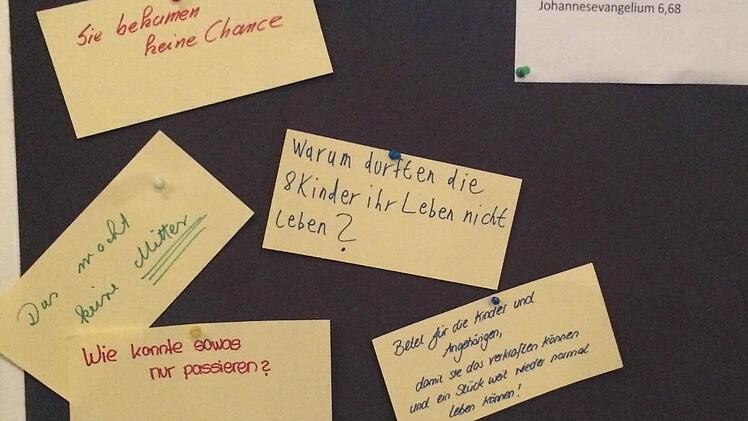 Sie bekamen
keine Chance
Johannesevangelium 6,68
Warum durften die
8 Kinder ihr Leben nicht
Leben?
Das macht
keine Mutter
Wie konnte sowas
nur passieren?
Betet für die Kinder und
Angehörigen,
damit sie das verkraften können
und ein Stück weit wieder normal
leben können!